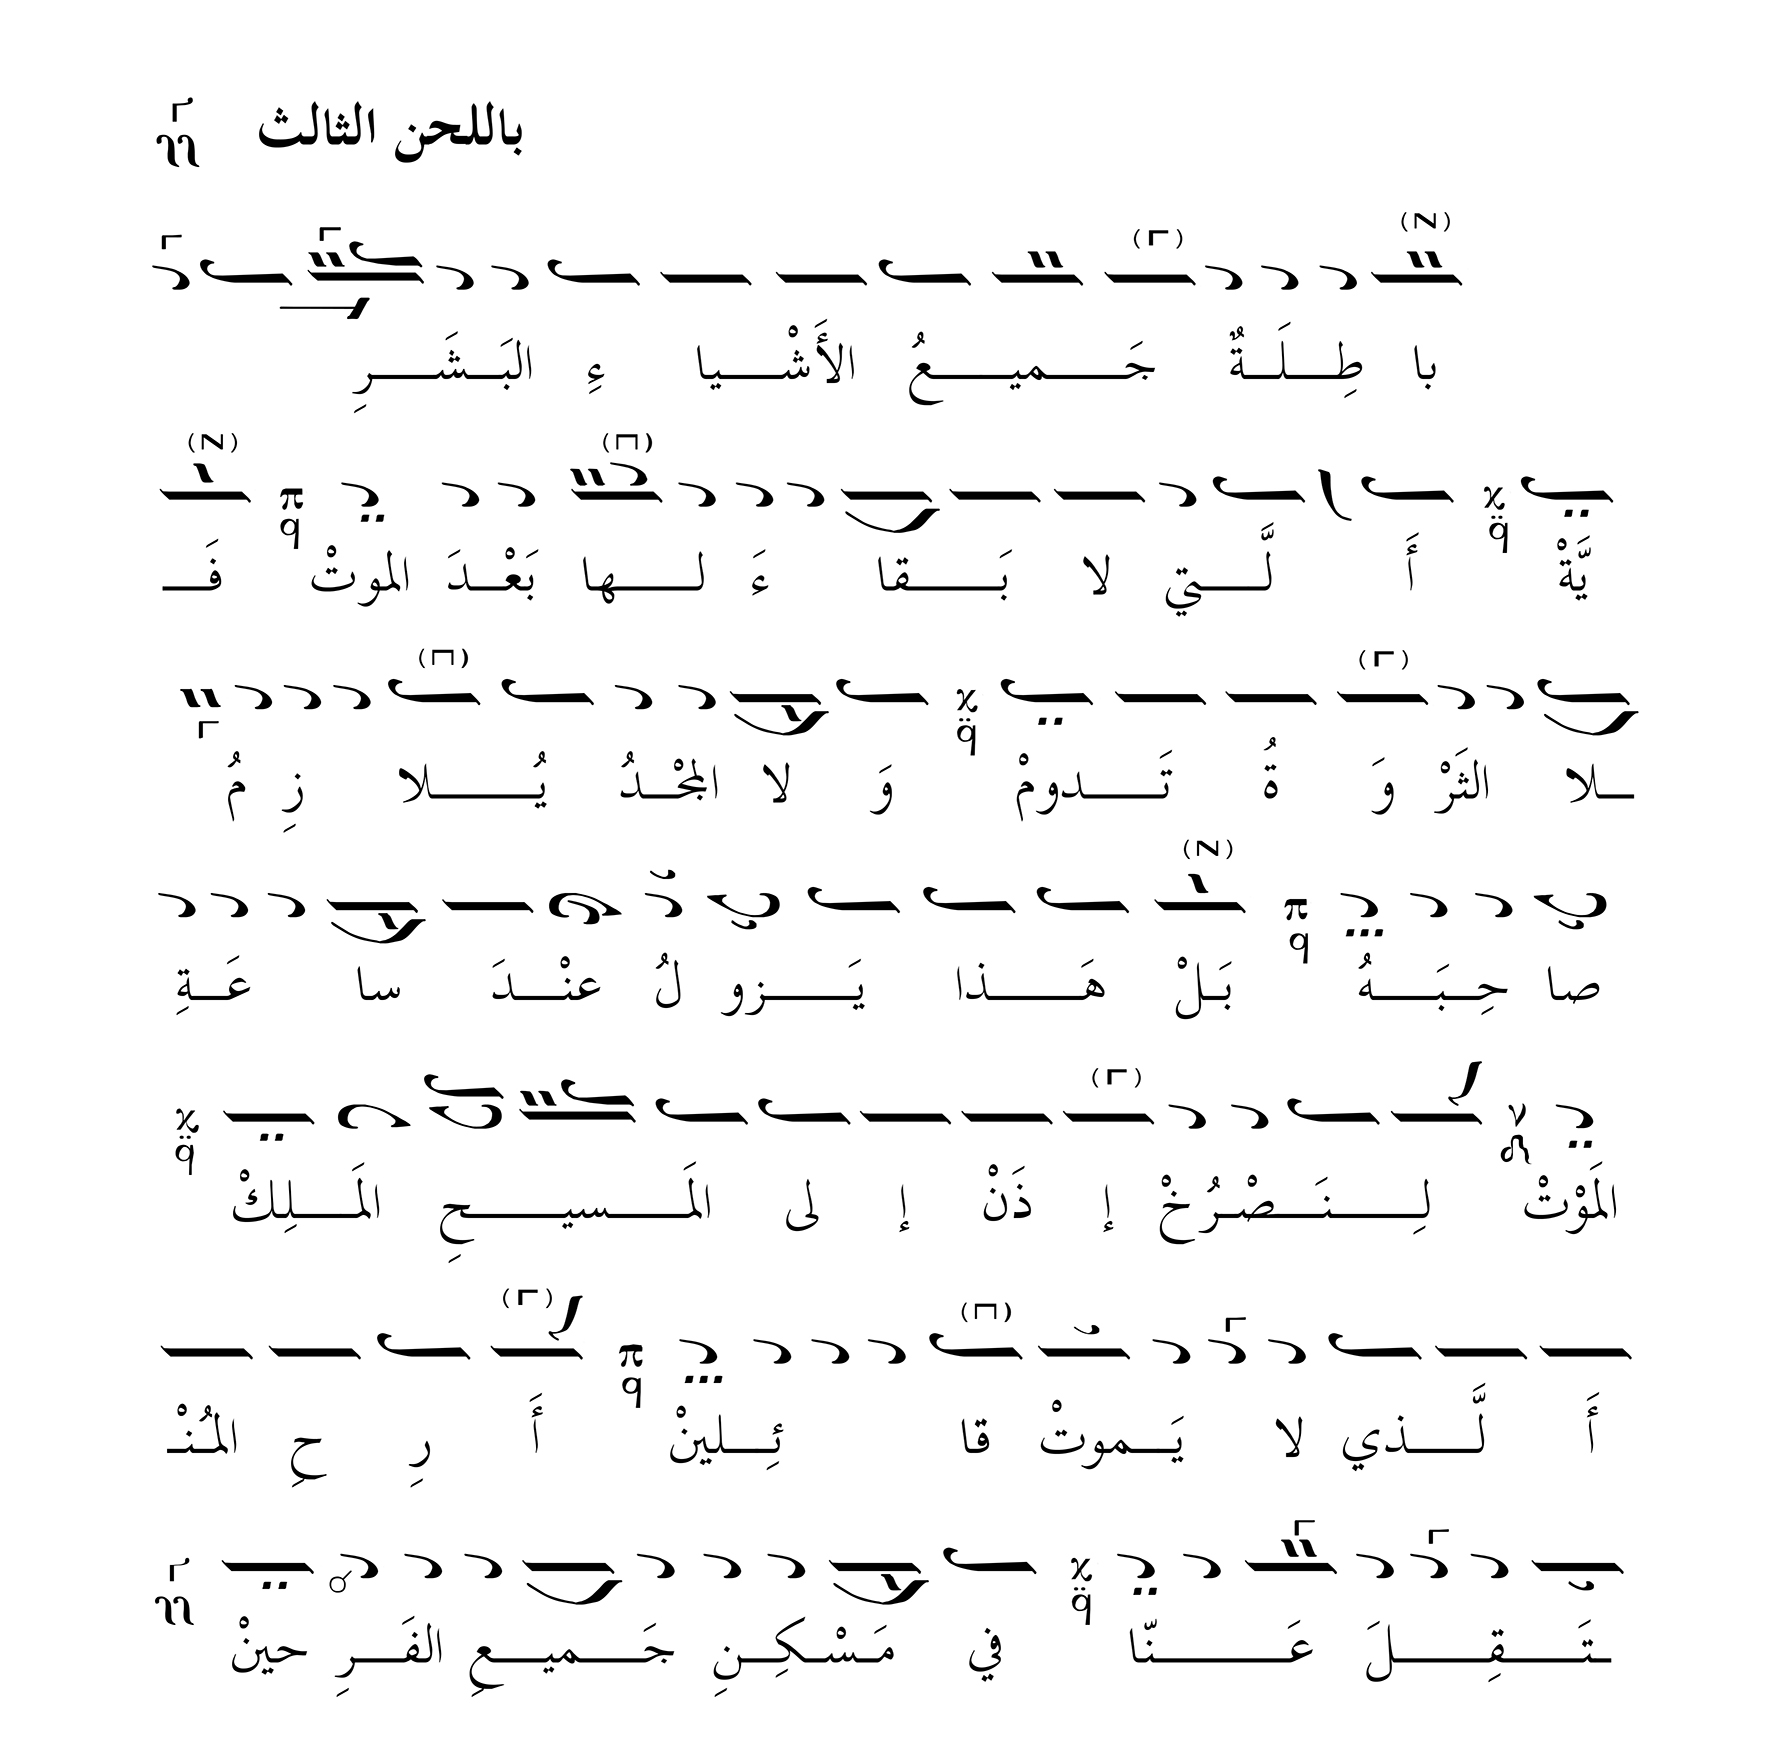 باللحن الثالث
با طِلَةٌ جَميعُ الأَشْيا ءِ البَشَرِ
يَّةْ أَ لَّتي لا بَقا ءَ لها بَعْدَ الموتْ فَـ
ـلا الثَرْ وَ ةُ تَدومْ وَ لا المجْدُ يُلا زِ مُ
صا حِبَهُ بَلْ هَذا يَزو لُ عنْدَ سا عَةِ
المَوْتْ لِنَصْرُخْ إ ذَنْ إ لى المَسيحِ المَلِكْ
أَ لَّذي لا يَموتْ قا ئِلينْ أَ رِ حِ المُنْـ
ـتَقِلَ عَنّا في مَسْكِنِ جَميعِ الفَرِ حينْ